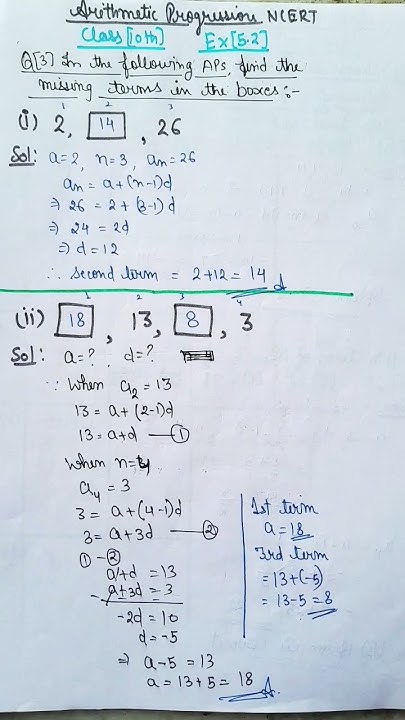 Arithmetic Progression NCERT
Class[10th] Ex[5.2]
Q[3] In the following APs, find the
missing terms in the boxes:-
1 2 3
(i) 2, 14, 26
Sol: a=2, n=3, an=26
an = a+(n-1)d
⇒ 26 = 2+(3-1)d
⇒ 24 = 2d
⇒ d=12
∴ second term = 2+12 = 14
1 2 3 4
(ii) 18, 13, 8, 3
Sol: a=? d=?
∵ When a2 = 13
13 = a+(2-1)d
13 = a+d —①
When n=4
a4 = 3
3 = a+(4-1)d
3 = a+3d —②
①-②
a+d = 13
- a+3d = 3
-2d = 10
d = -5
⇒ a-5 = 13
a = 13+5 = 18 A.
1st term
a = 18
3rd term
= 13+(-5)
= 13-5 = 8